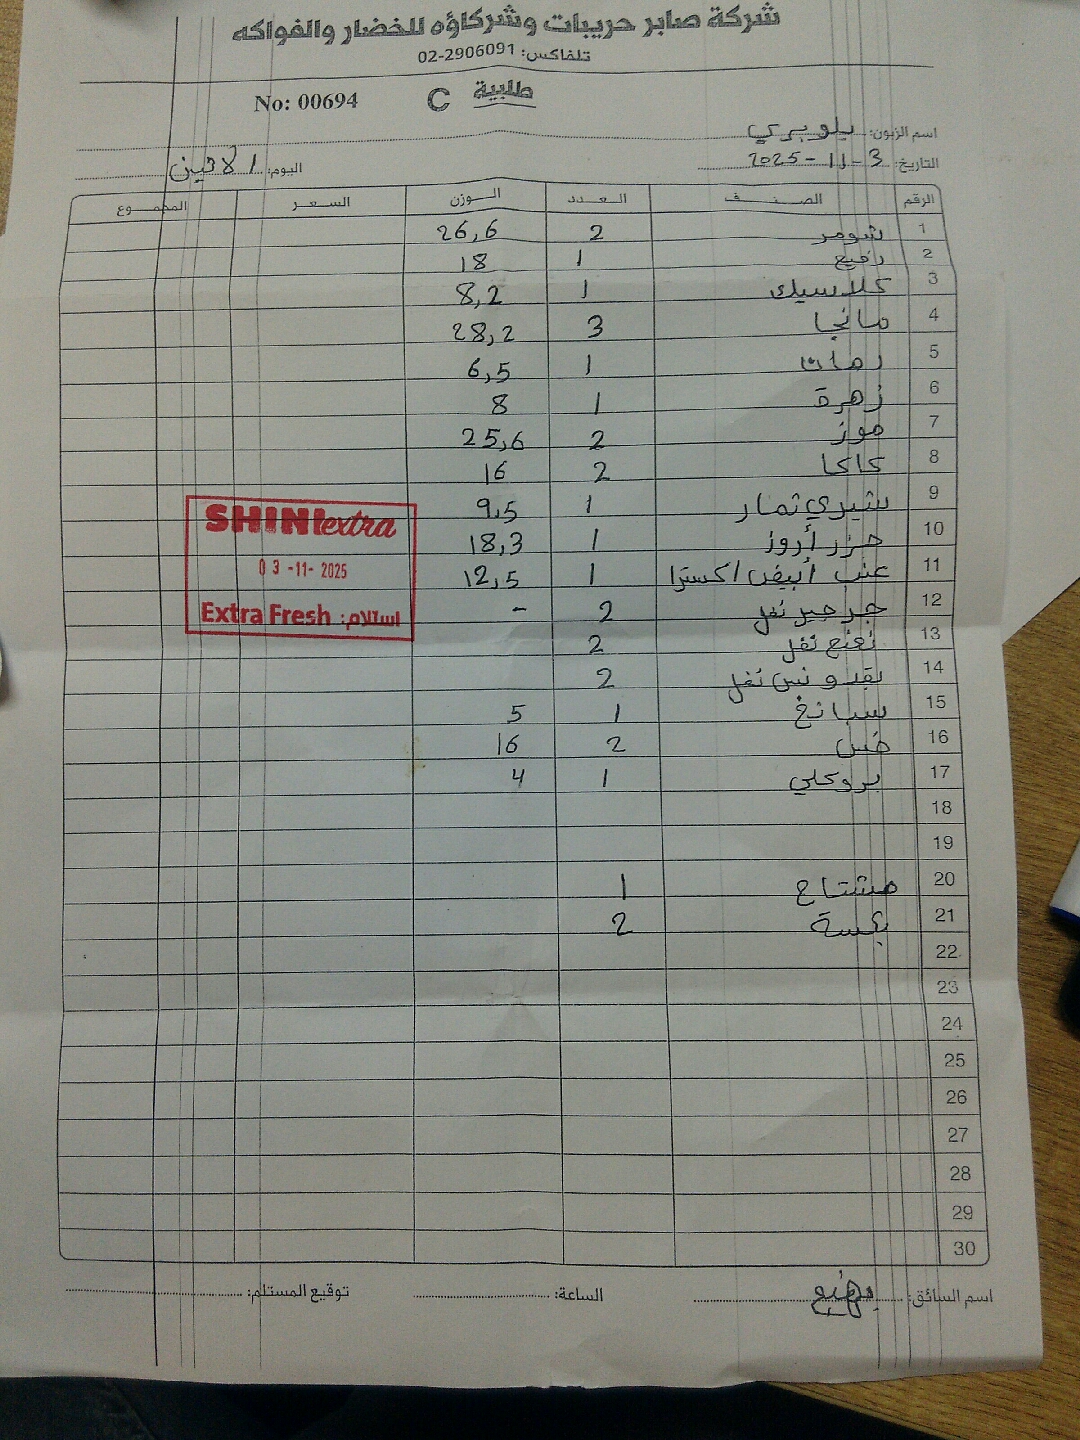 شركة صابر حريبات وشركاؤه للخضار والفواكه
تلفاكس: 02-2906091
No: 00694 C طلبية
اسم الزبون: بلوبري
التاريخ: 3-11-2025 اليوم: الاثنين
الرقم الصنف العدد الوزن السعر المجموع
1 شومر 2 26,6
2 رفيع 1 18
3 كلاسيك 1 8,2
4 مانجا 3 28,2
5 رمان 1 6,5
6 زهرة 1 8
7 موز 2 25,6
8 كاكا 2 16
9 شيري تمار 1 9,5
10 جزر أروز 1 18,3
11 عنب أبيض اكسترا 1 12,5
12 جرجير نفل 2 -
13 نعنع نفل 2
14 بقدونس نفل 2
15 سبانخ 1 5
16 خس 2 16
17 بروكلي 1 4
18
19
20 مشتاح 1
21 بكسة 2
22
23
24
25
26
27
28
29
30
SHINI extra
03-11-2025
Extra Fresh استلام:
اسم السائق: الساعة: توقيع المستلم: